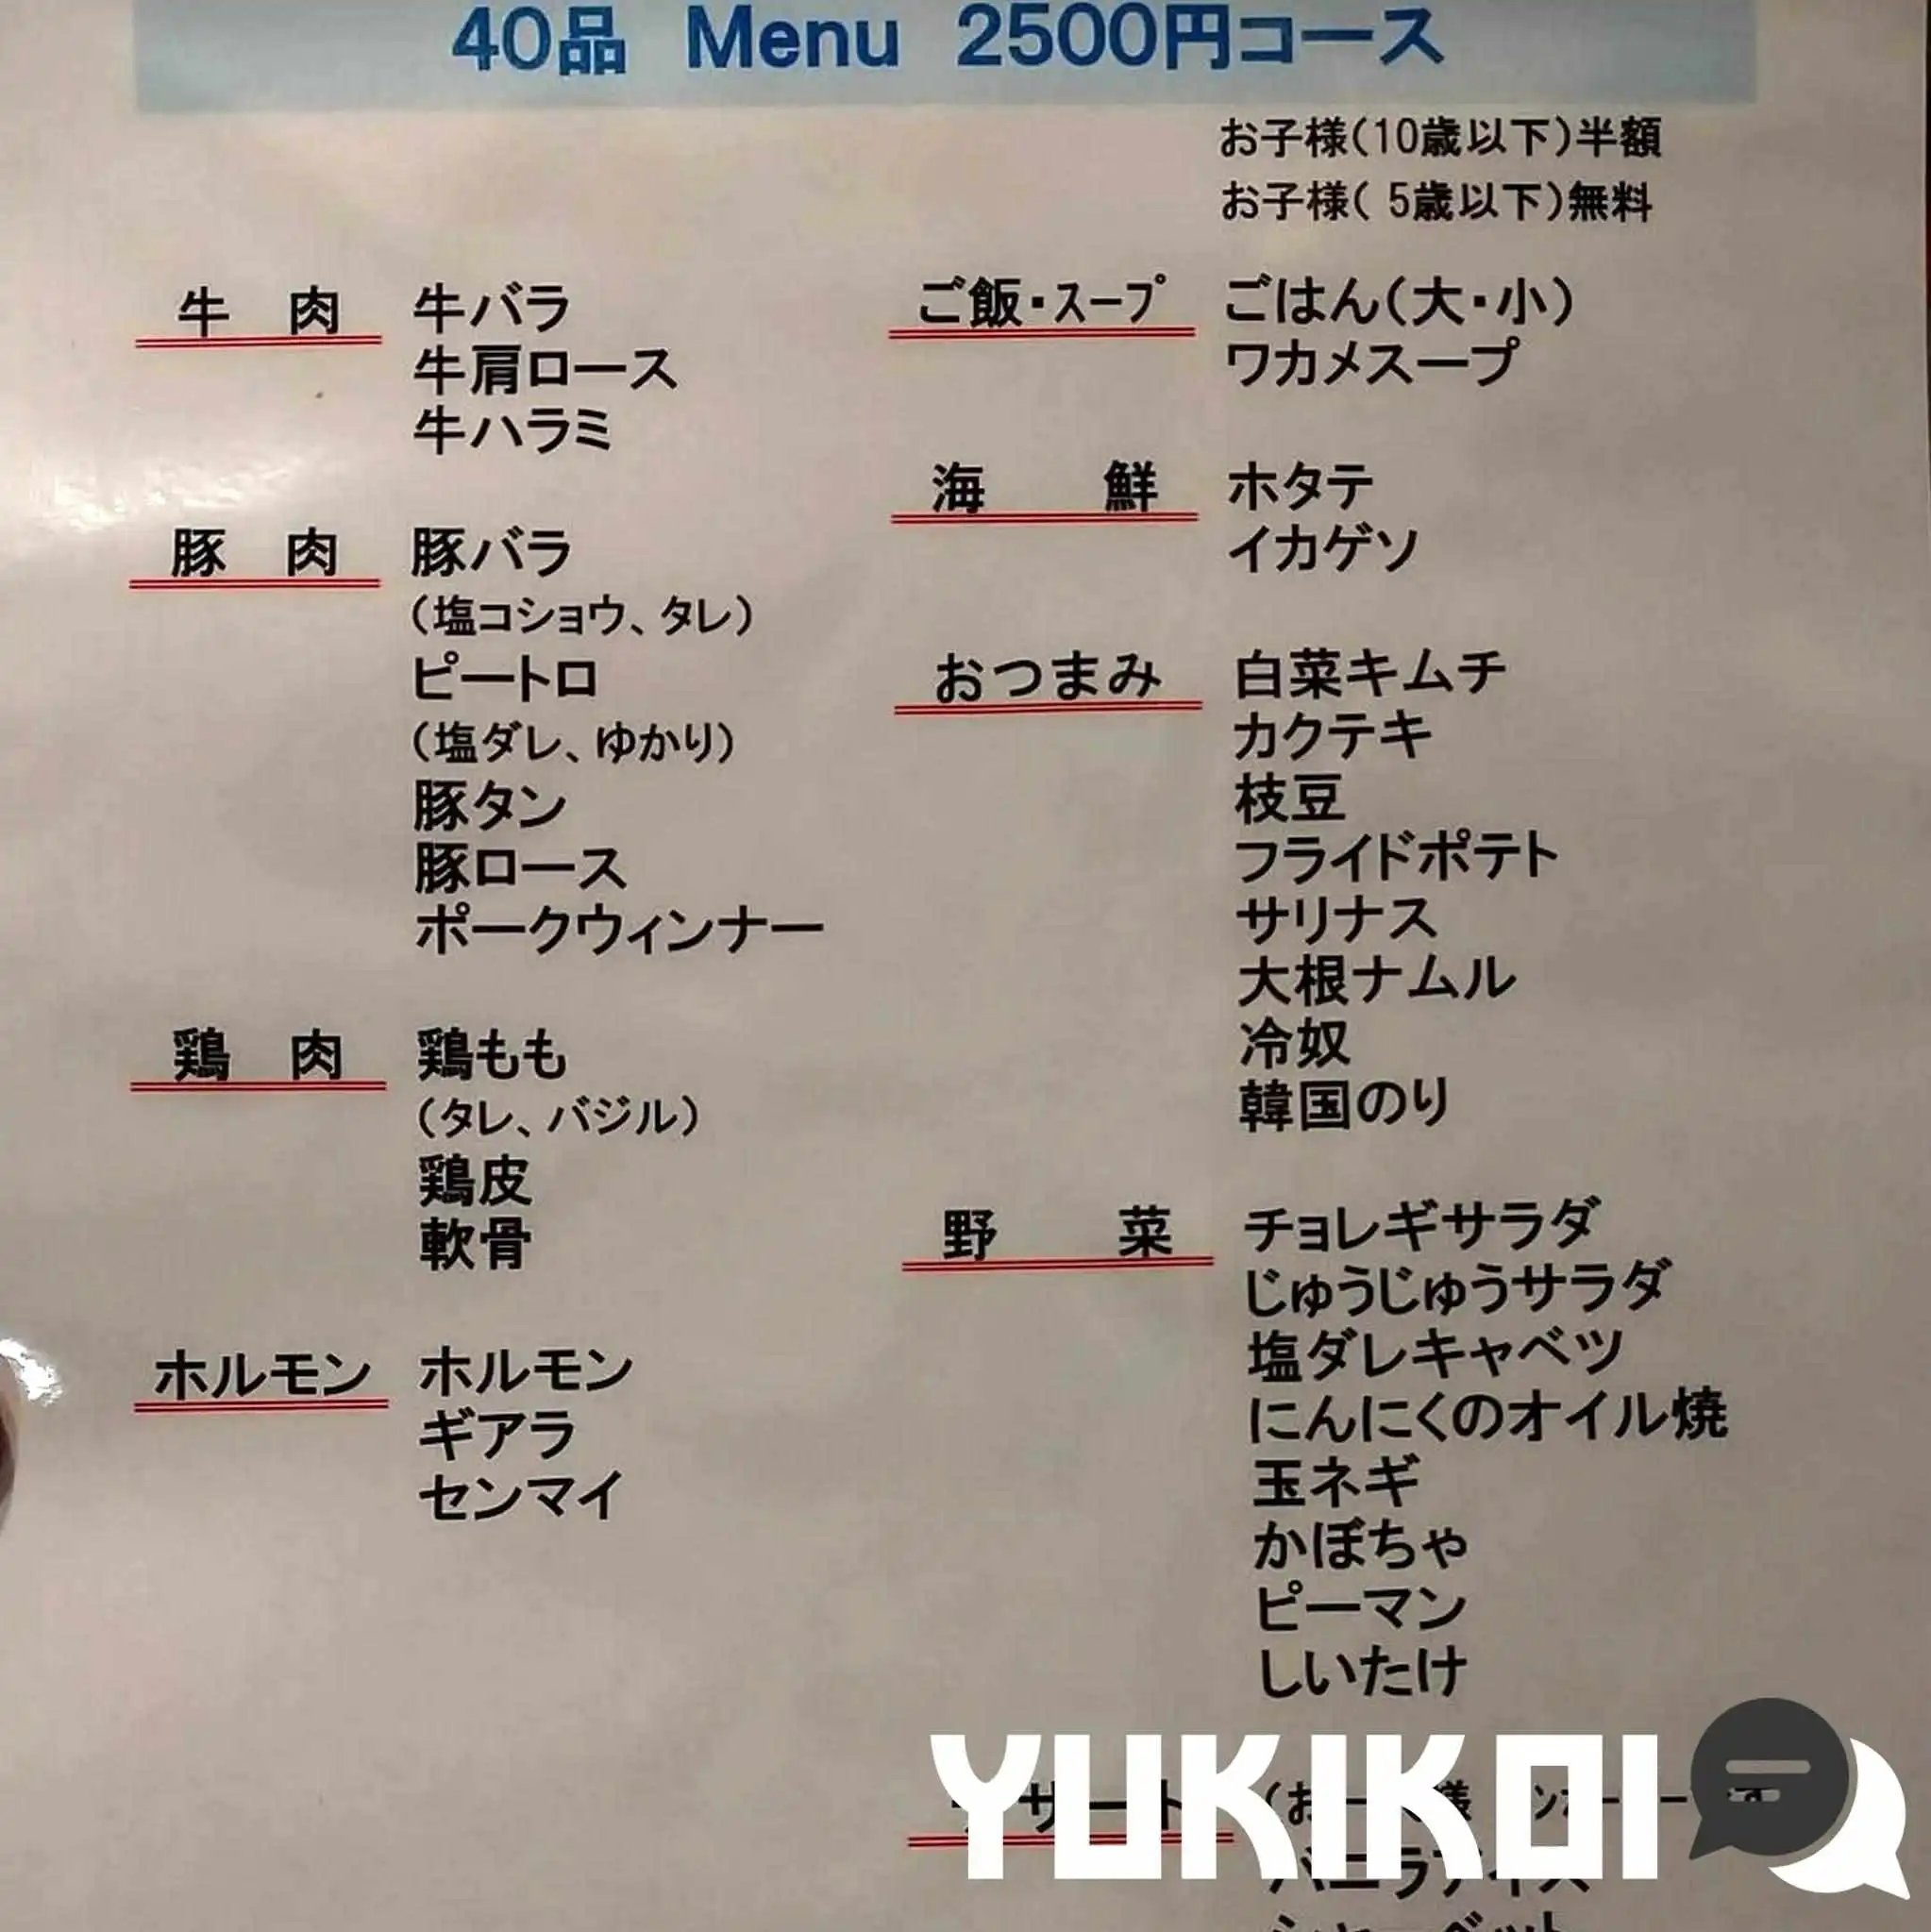 40品 Menu 2500円コース
お子様(10歳以下)半額
お子様( 5歳以下)無料
牛 肉
牛バラ
牛肩ロース
牛ハラミ
豚 肉
豚バラ
(塩コショウ、タレ)
ピートロ
(塩ダレ、ゆかり)
豚タン
豚ロース
ポークウィンナー
鶏 肉
鶏もも
(タレ、バジル)
鶏皮
軟骨
ホルモン
ホルモン
ギアラ
センマイ
ご飯・スープ
ごはん(大・小)
ワカメスープ
海 鮮
ホタテ
イカゲソ
おつまみ
白菜キムチ
カクテキ
枝豆
フライドポテト
サリナス
大根ナムル
冷奴
韓国のり
野 菜
チョレギサラダ
じゅうじゅうサラダ
塩ダレキャベツ
にんにくのオイル焼
玉ネギ
かぼちゃ
ピーマン
しいたけ
YUKIKOI
バニラアイス